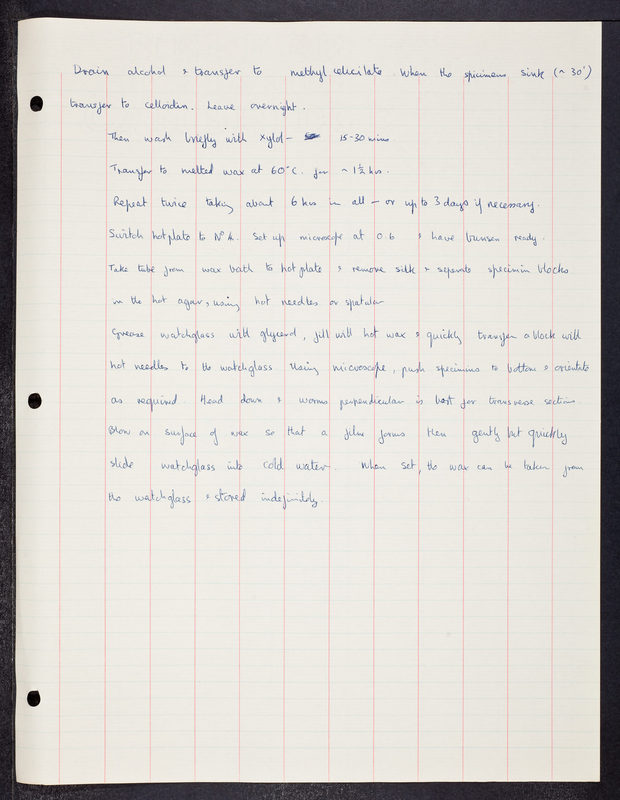 Drain alcohol & transfer to methyl celicilate. When the specimens sink (~ 30')
transfer to celloidin. Leave overnight.
Then wash briefly with xylol – 15-30 mins.
Transfer to melted wax at 60°C. for ~ 1½ hrs.
Repeat twice taking about 6 hrs in all – or up to 3 days if necessary.
Switch hotplate to Nº 4. Set up microscope at 0.6 & have bunsen ready.
Take tube from wax bath to hot plate & remove silk & separate specimin blocks
in the hot agar, using hot needles or spatular
Grease watchglass will glycerol, fill will hot wax & quickly transfer a block will
hot needles to the watchglass. Using microscope, push specimins to bottom & orientate
as required. Head down & worms perpendicular is best for transverse section.
Blow on surface of wax so that a film forms then gently but quickly
slide watchglass into cold water. When set, the wax can be taken from
the watchglass & stored indefinitely.